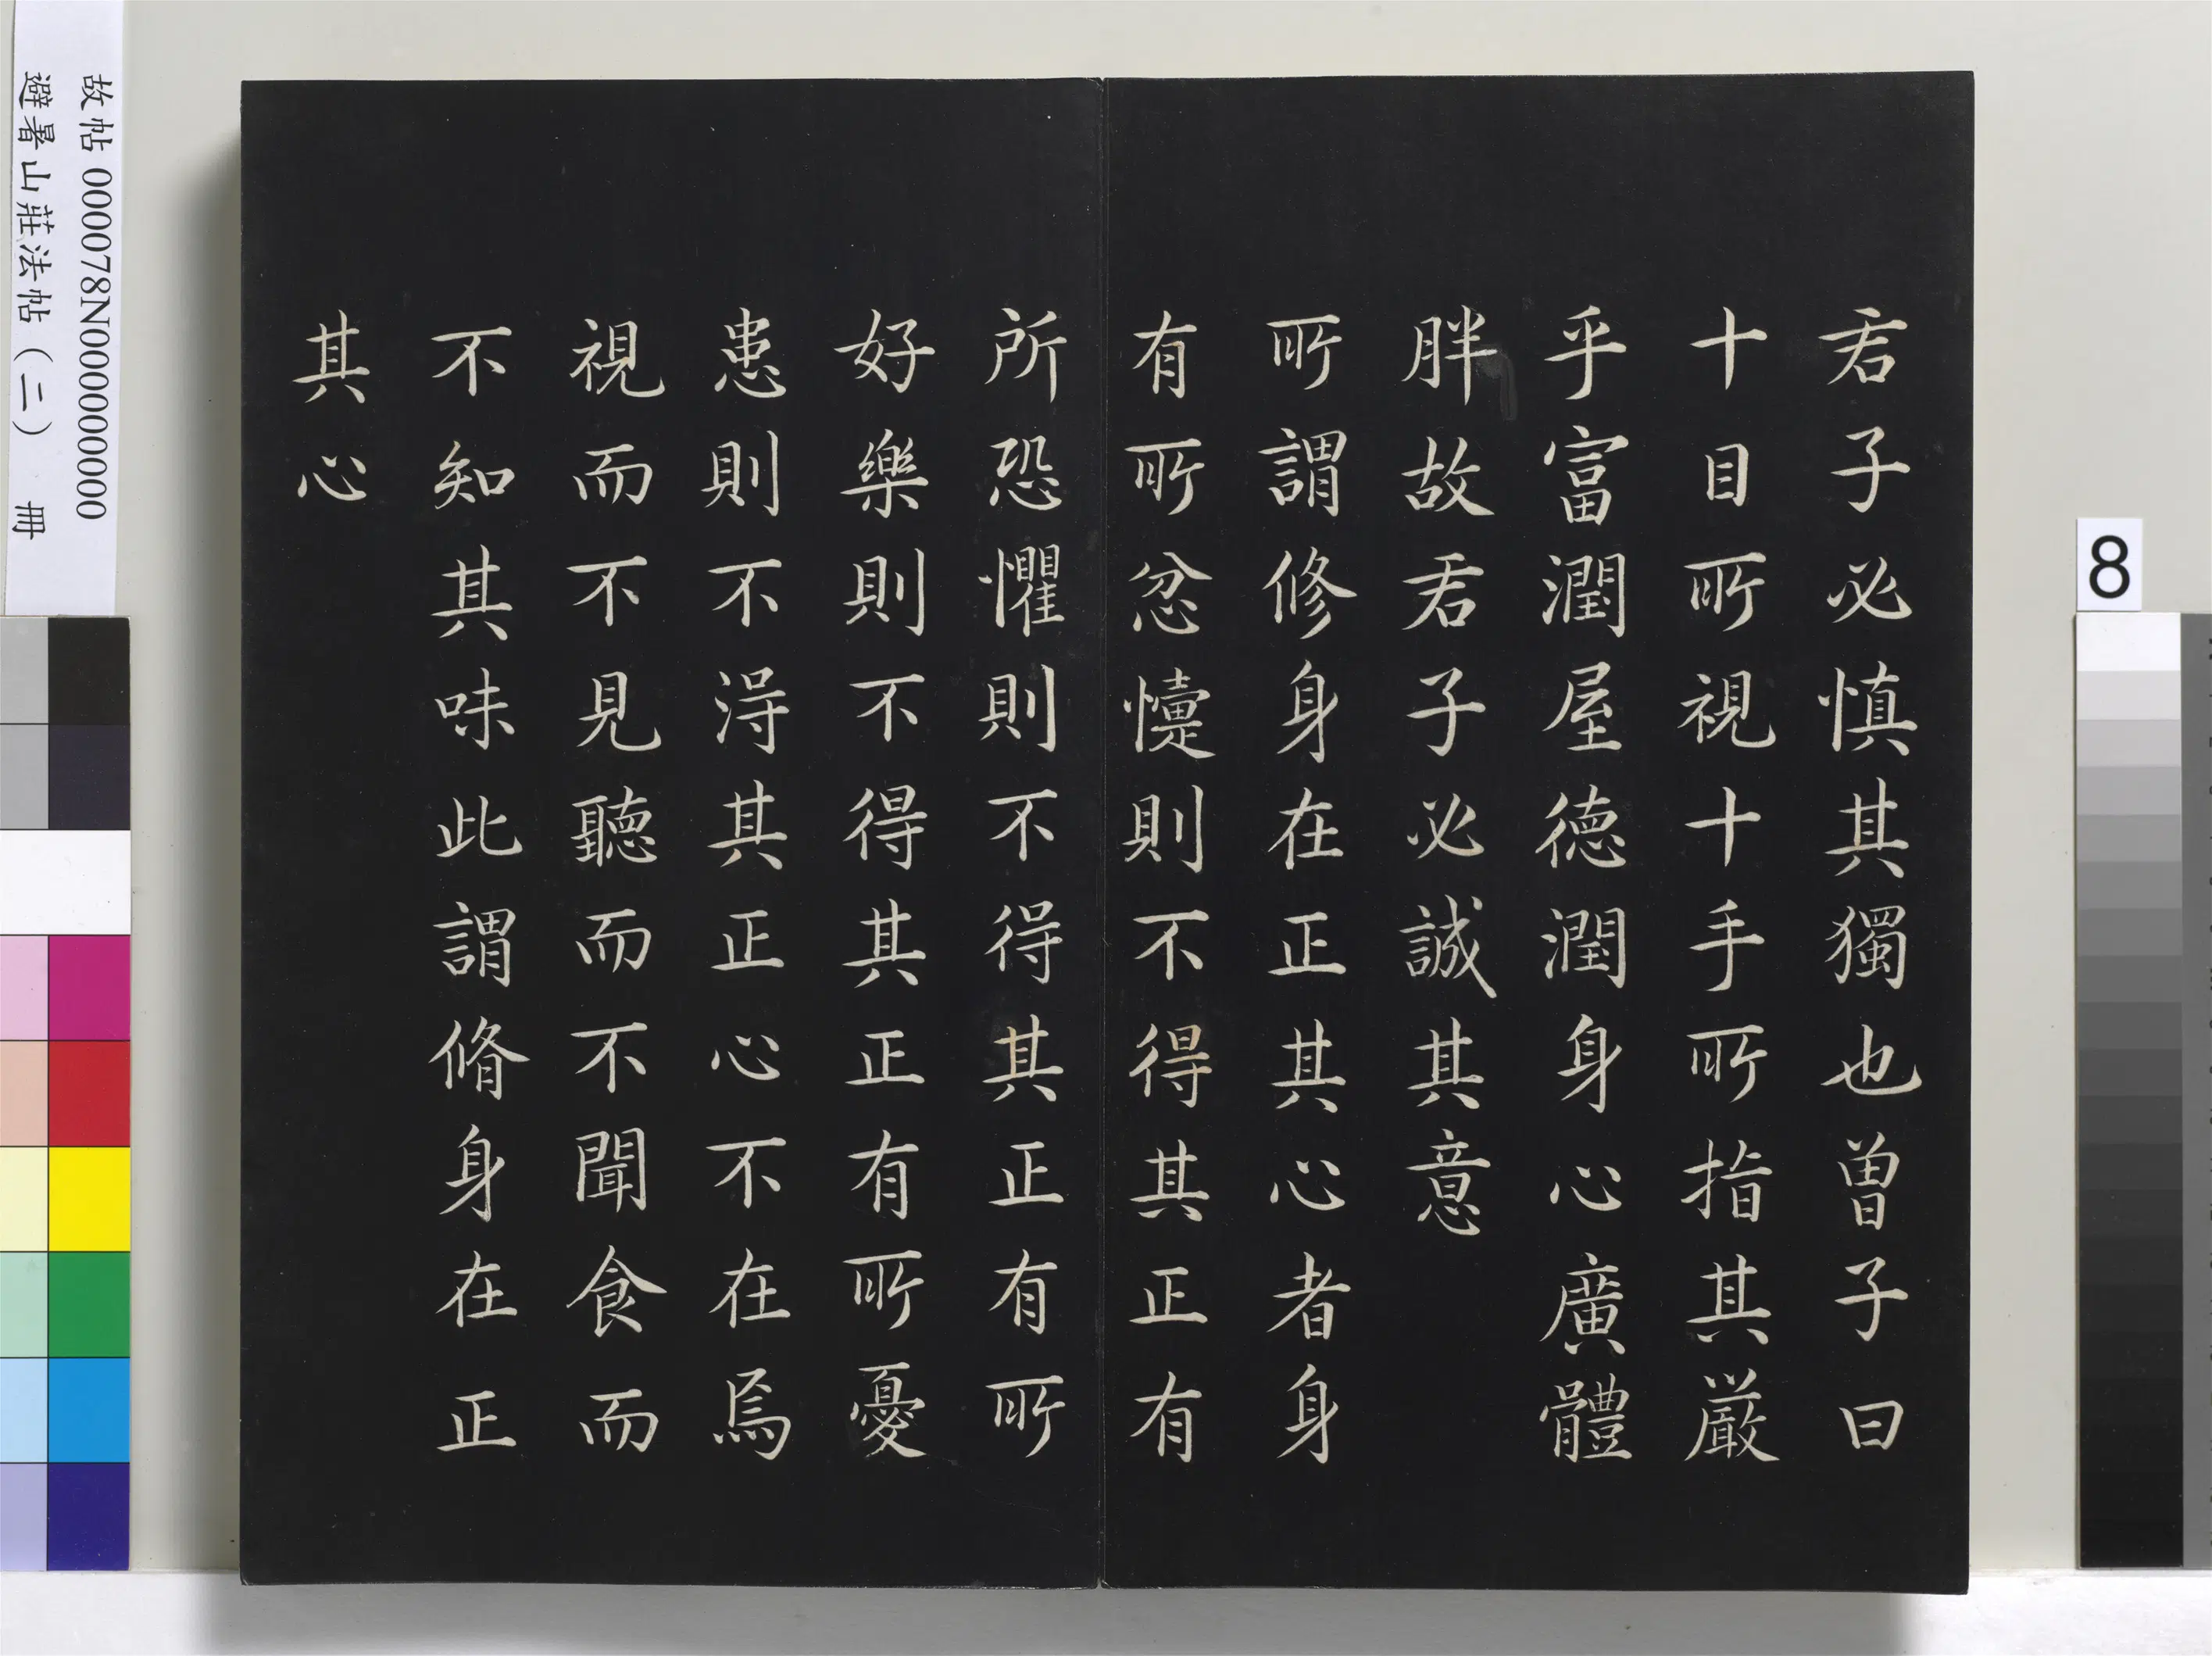 君子必慎其獨也曽子曰
十目所視十手所指其嚴
乎富潤屋德潤身心廣體
胖故君子必誠其意
所謂修身在正其心者身
有所忿懥則不得其正有
所恐懼則不得其正有所
好樂則不得其正有所憂
患則不淂其正心不在焉
視而不見聽而不聞食而
不知其味此謂脩身在正
其心
故帖 000078N000000000
避暑山莊法帖（二） 冊
8